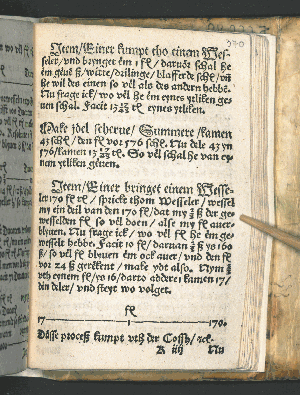 Item/Einer kumpt tho einem Wes-
seler/vnd bringet em 1 fl/ daruör schal he
em geuen ß/witte/drilinge/blafferde schl/vñ
he wil des einen so vel als des andern hebbē.
Nu frage ick/ wo vel he em eynes ytliken ge-
uen schal. Facit eynes ytliken.
Make idel scherue/ Summere/kamen
43 schl/ den fl vor 576 schl. Nu dele 43 yn
576/kamen So vel schal he van ey-
nem ytliken geuen.
Item/Einer bringet einem Wesse-
ler 170 fl / sprickt thom Wesseler/ wessel
my ein deil van den 170 fl/dat my ß der ge-
wesselden so vel doen/ alse my fl auer-
blyuen. Nu frage ick/ wo vel fl he em ge-
wesselt hebbe. Facit 10 fl/ daruan ß ys 160
ß/ so vel fl bleuen em ock auer/ vnd den fl
vor 24 ß gerekent/ make ydt also. Nym
vth eynem fl/ys 16/darto addere 1 kamen 17/
din deler/ vnd steyt wo volget.
fl
17 170.
Düsse proceß kumpt vth der Cossz/ rc.
K iiij Nu